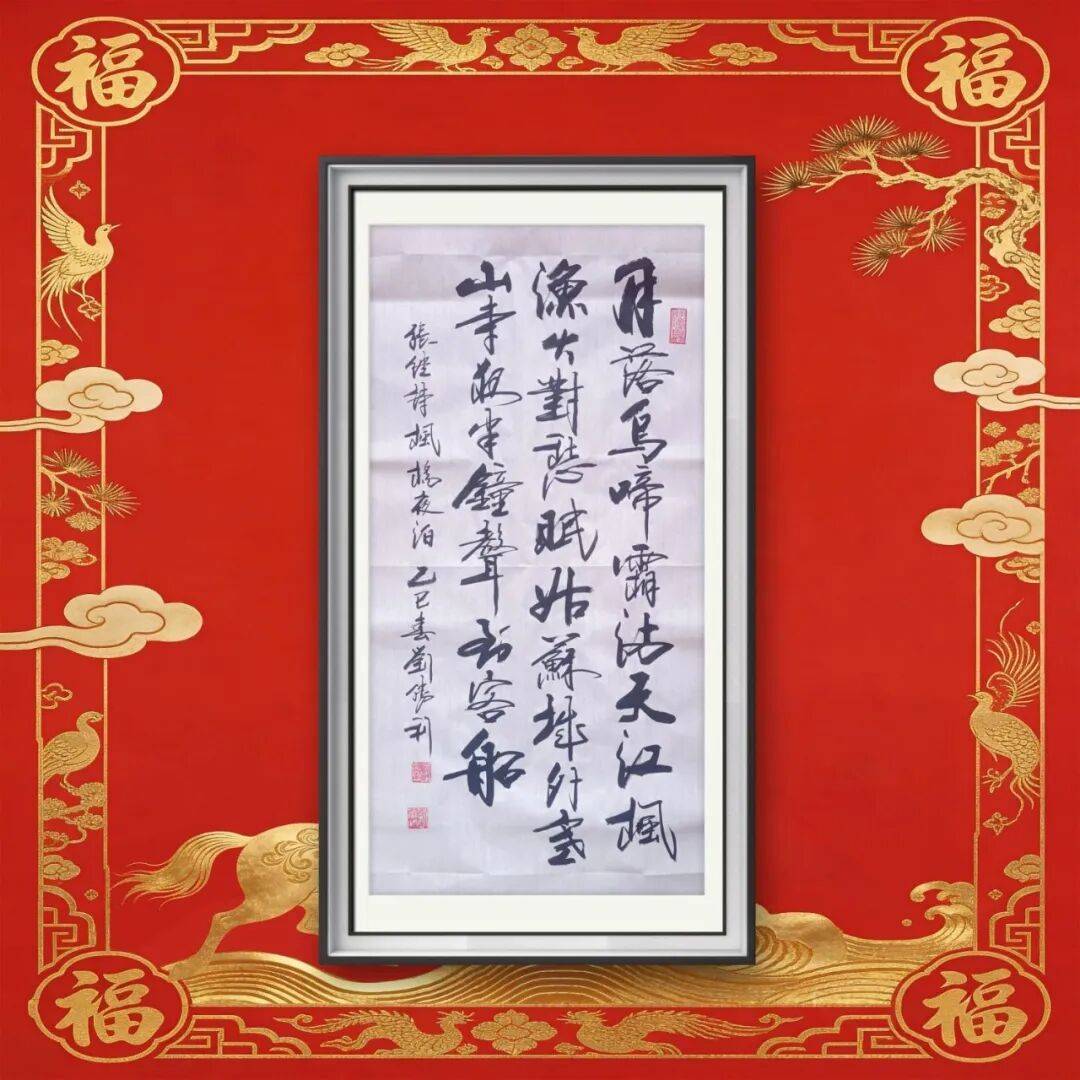 福
福
月落烏啼霜滿天江楓
漁火對愁眠姑蘇城外寒
山寺夜半鐘聲到客船
張繼詩楓橋夜泊 乙巳春劉勝利
福
福